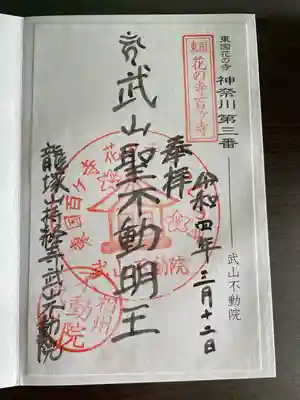 東国花の寺
神奈川 第三番
武山不動院
東国
花の寺百ヶ寺
奉拝
令和四年三月十二日
武山聖不動明王
龍塚山持経寺武山不動院
東国百ヶ寺
武山不動院
相州
不動院